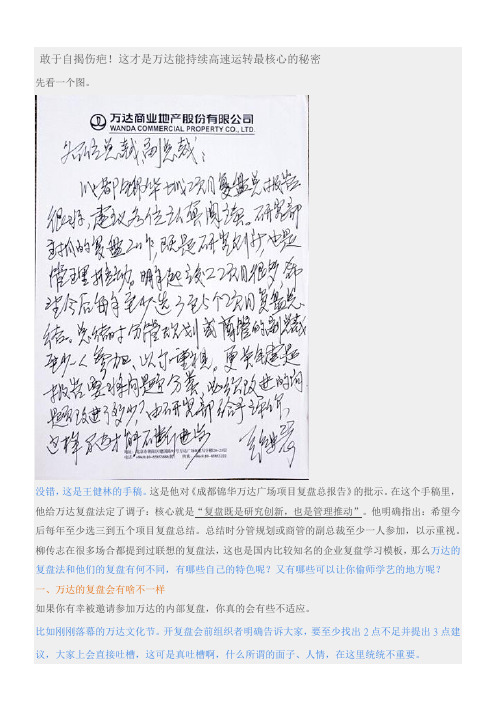 敢于自揭伤疤！这才是万达能持续高速运转最核心的秘密
先看一个图。
万达商业地产股份有限公司
WANDA COMMERCIAL PROPERTY CO., LTD.
各位总裁、副总裁：
成都锦华城项目复盘总报告
很好，建议各位认真阅读。研究部
封闭的复盘工作，既是研究创新，也是
管理推动。明年起
今后每年至少选3至5个项目复盘总
结。总结时分管规划或商管的副总裁
至少一人参加，以示重视。更关键是
报告要将问题分类，必须改进的问
题改进了多少，由研究部给予评价，
这样才能不断进步
王健林
没错，这是王健林的手稿。这是他对《成都锦华万达广场项目复盘总报告》的批示。在这个手稿里，
他给万达复盘法定了调子：核心就是“复盘既是研究创新，也是管理推动”。他明确指出：希望今
后每年至少选三到五个项目复盘总结。总结时分管规划或商管的副总裁至少一人参加，以示重视。
柳传志在很多场合都提到过联想的复盘法，这也是国内比较知名的企业复盘学习模板，那么万达的
复盘法和他们的复盘有何不同，有哪些自己的特色呢？又有哪些可以让你偷师学艺的地方呢？
一、万达的复盘会有啥不一样
如果你有幸被邀请参加万达的内部复盘，你真的会有些不适应。
比如刚刚落幕的万达文化节。开复盘会前组织者明确告诉大家，要至少找出2点不足并提出3点建
议，大家上会直接吐槽，这可是真吐槽啊，什么所谓的面子、人情，在这里统统不重要。